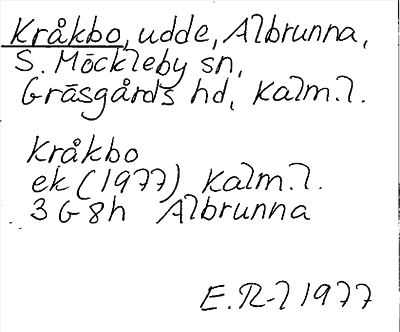 Kråkbo, udde, Albrunna,
S. Möckleby sn,
Gräsgårds hd, Kalm.l.
Kråkbo
ek (1977) Kalm.l.
3 G 8h Albrunna
E.R-l 1977